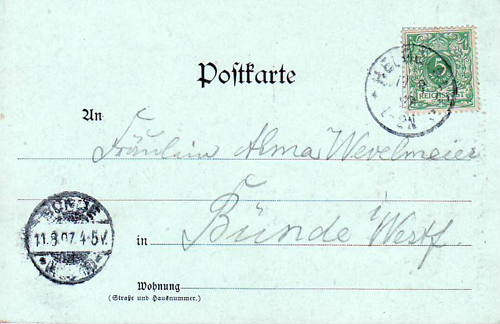 Postkarte
5
REICHSPOST
1-2N
An
Fräulein Alma Wevelmeier
11.8.97. 4-5V.
in Bünde i/Westf.
Wohnung
(Straße und Hausnummer.)